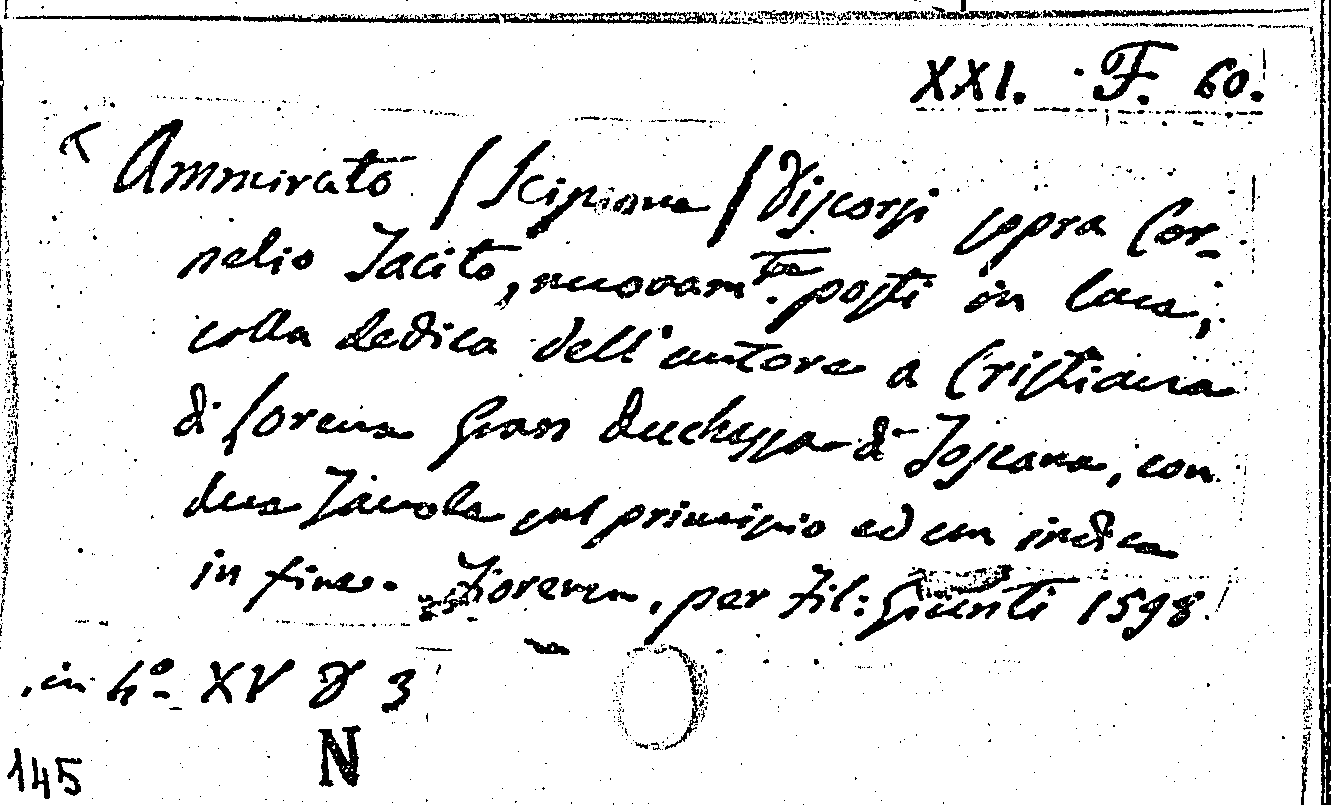 XXI. F. 60.
Ammirato / Scipione / Discorsi sopra Cor-
nelio Tacito, nuovam.te posti in luce,
colla dedica dell'autore a Cristiana
di Lorena Gran Duchessa di Toscana, con
due Tavole sul principio ed un indice
in fine. Fiorenza, per Fil: Giunti 1598
in 4o. XV D 3
N
145